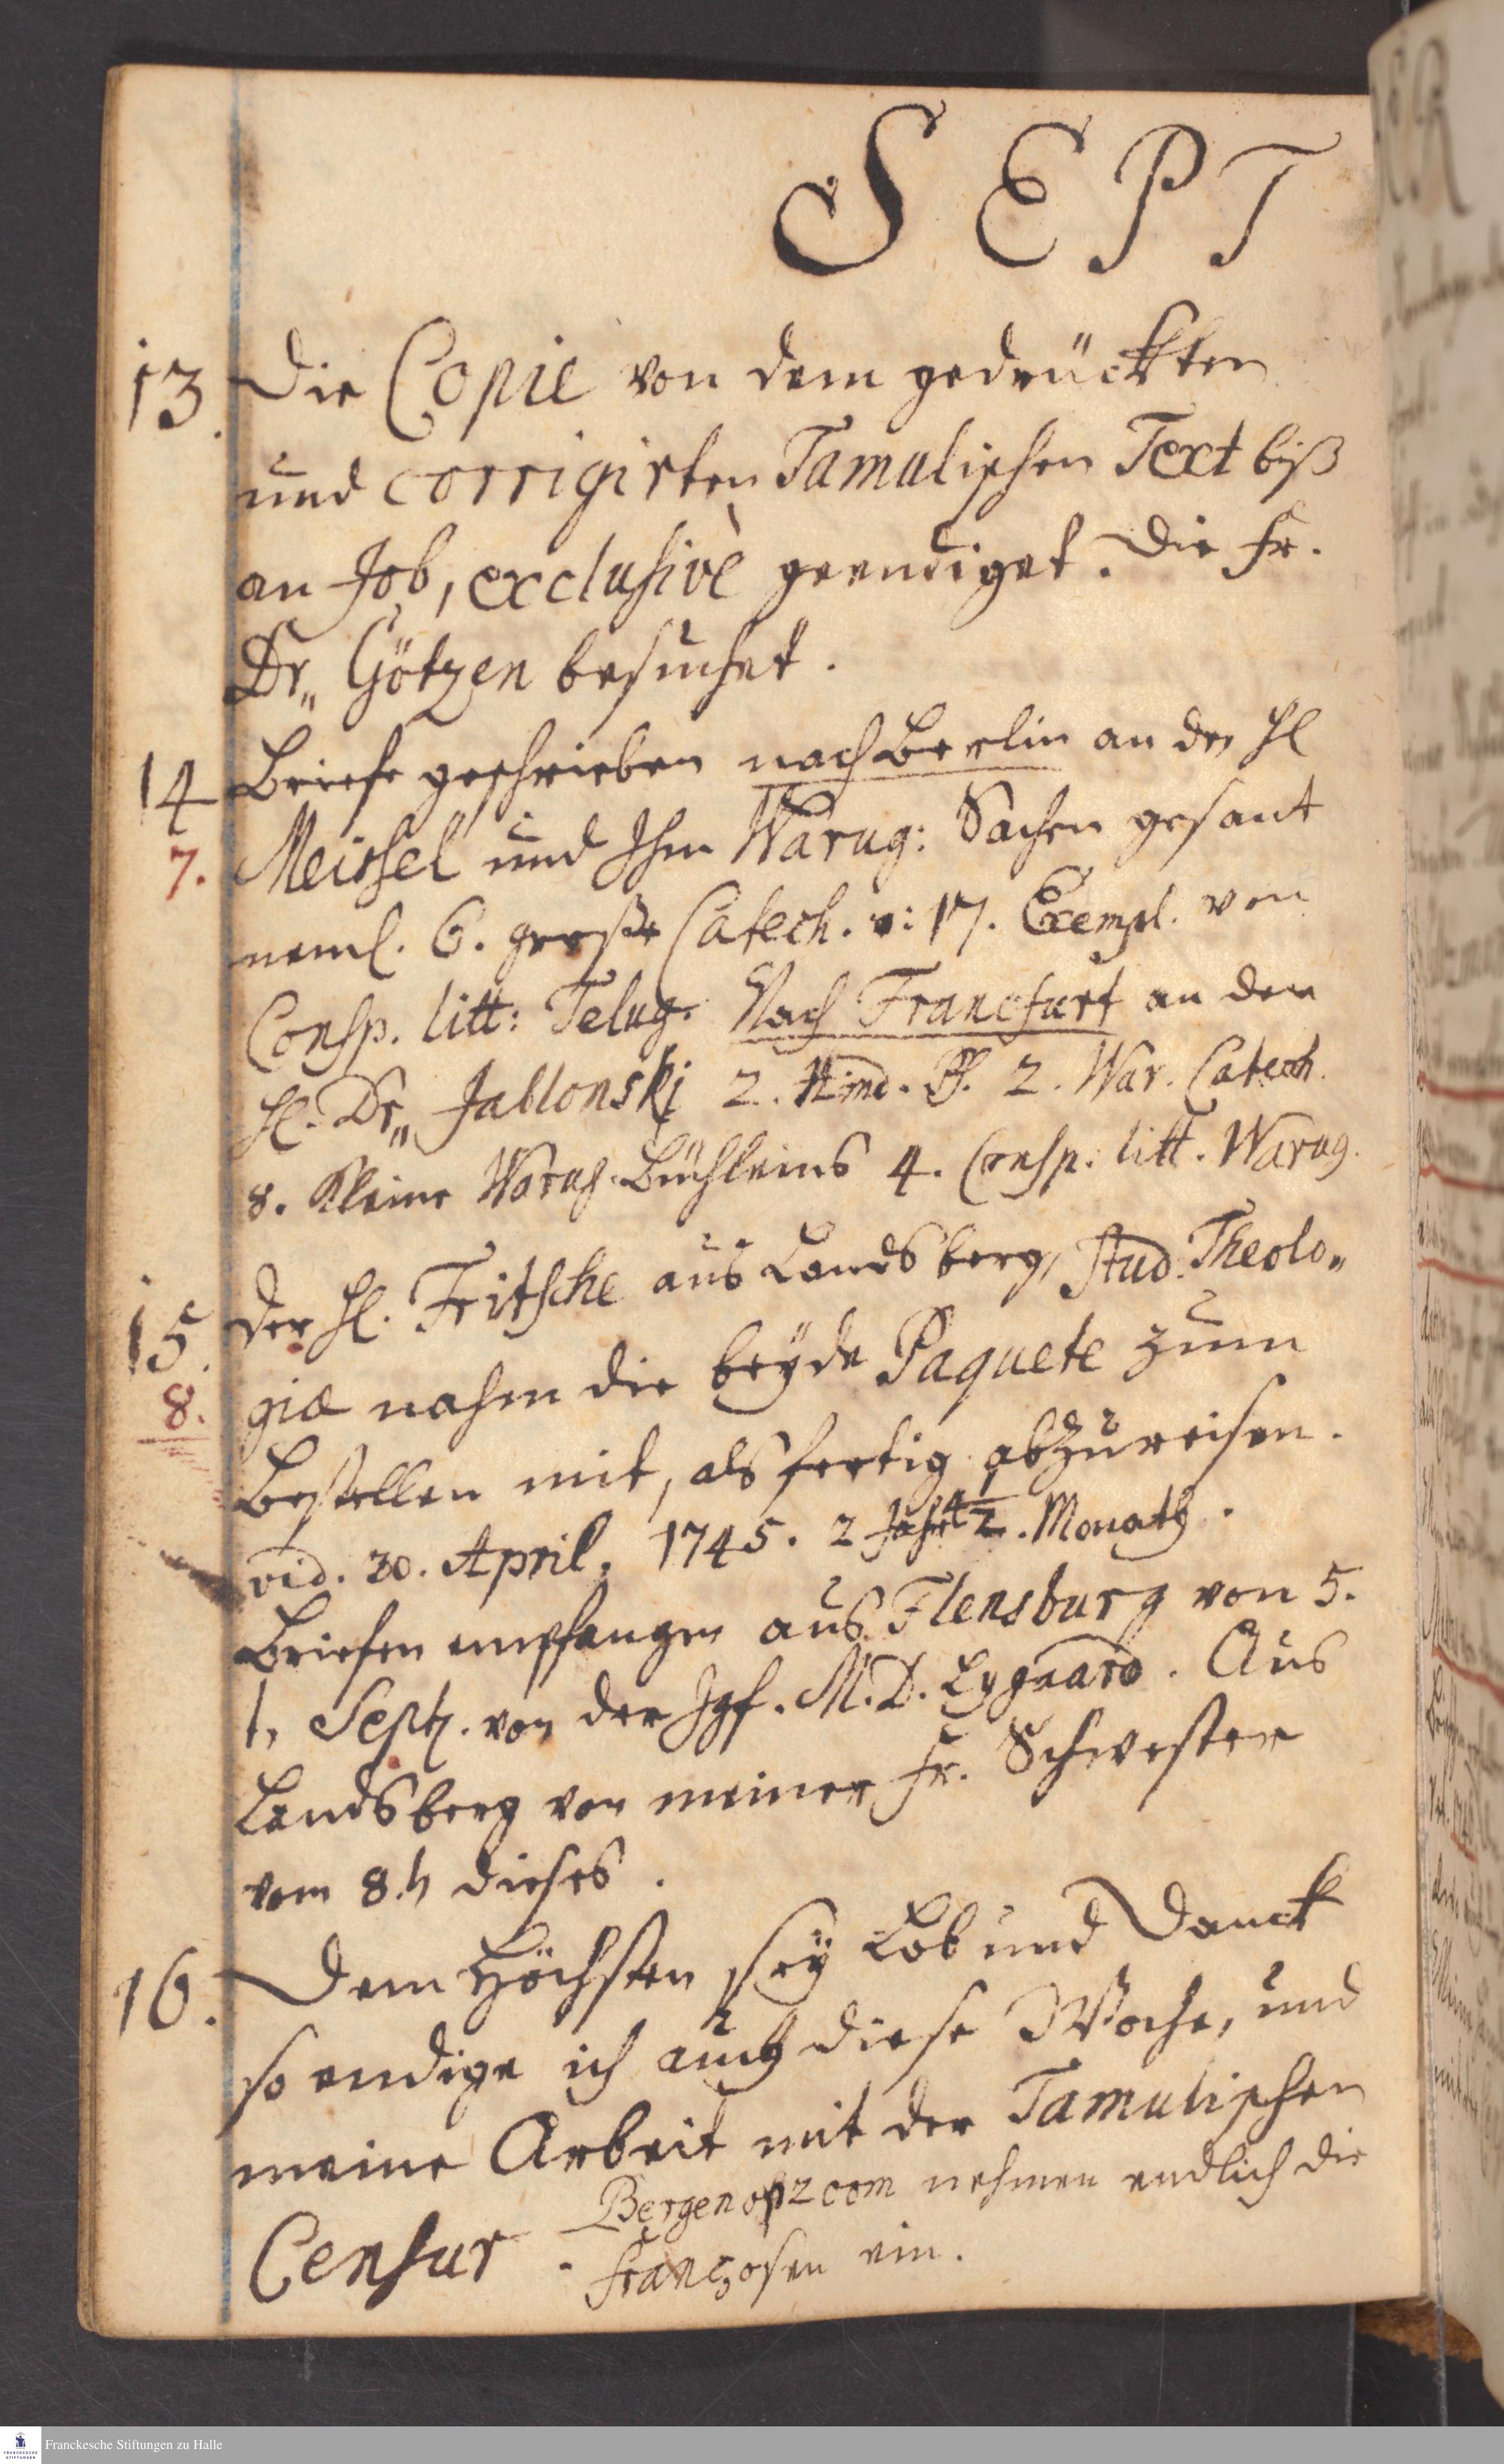 SEPT
13. Die Copie von dem gedrückten
und corrigirten Tamulischen Text biß
an Job, exclusivè geendiget. Die Fr.
Dr„ Götzen besuchet.
14 Briefe geschrieben nach Berlin an den H
7. Meissel und Ihm Warug: Sachen gesant
neml. 6. große Catech. u: 17. Exempl. von
Consp. litt: Telug. Nach Francfurt an den
H. Dr„ Jablonski 2. Hind. Ps. 2. War. Catech.
8. kleine Warug. Büchleins 4. Consp. litt. Warug.
15. Der H. Fritsche aus Landsberg, Stud. Theolo„
8. giæ nahm die beyde Paquete zum
Bestellen mit, als fertig abzureisen.
vid. 30. April. 1745. 2 Jahr 4 1/2. Monath.
Briefen empfangen aus Flensburg von 5.
t, Sept. von der Jgf. M. D. Lygaard. Aus
Landsberg von meiner Fr. Schwester
vom 8.h dieses.
16. Dem Höchsten sey Lob und Danck
so endige ich auch diese Woche, und
meine Arbeit mit der Tamulischen
Censur. Bergen opzoom nehmen endlich die
Franzosen ein.
Franckesche Stiftungen zu Halle
FRANCKESCHE STIFTUNGEN